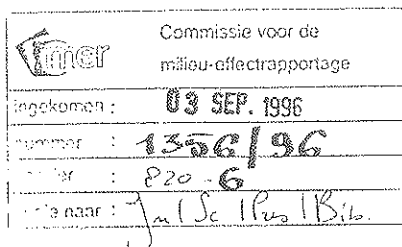 mer
Commissie voor de
milieu-effectrapportage
ingekomen : 03 SEP. 1996
nummer : 1356/96
: 820-6
naar : Jn | Sc | Pus | Bib.